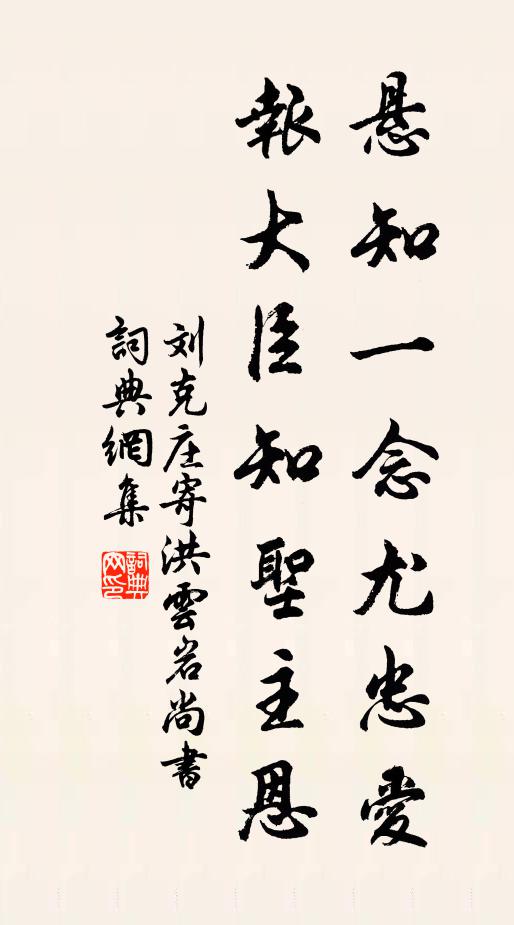 悬知一念尤忠愛
報大臣知聖主恩
刘克庄寄洪雲岩尚書
詞典網集
詞典網印